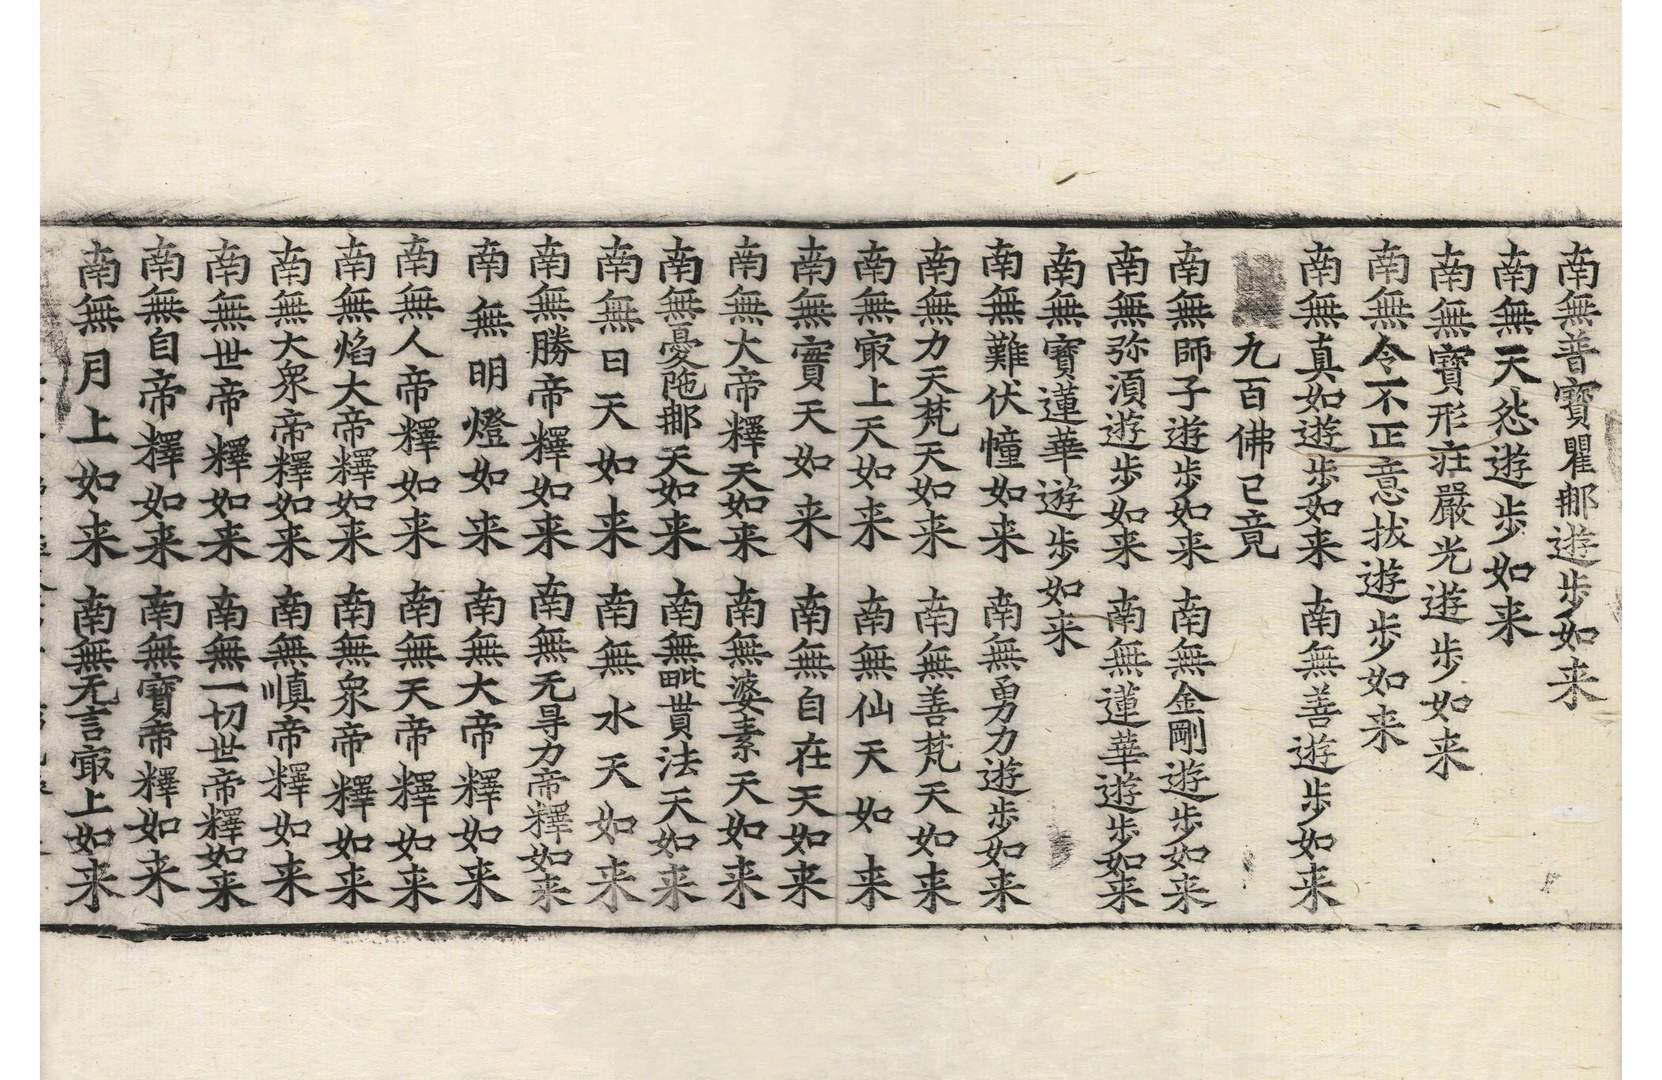 南無普寶瞿那遊步如来
南無天怨遊步如来
南無寶形庄嚴光遊步如来
南無令不正意拔遊步如来
南無真如遊步如来　南無善遊步如来
九百佛已竟
南無師子遊步如来　南無金剛遊步如来
南無弥湏遊步如来　南無蓮華遊步如来
南無寶蓮華遊步如来
南無難伏幢如来　南無勇力遊步如来
南無力天梵天如来　南無善梵天如来
南無㝡上天如来　南無仙天如来
南無實天如来　南無自在天如来
南無大帝釋天如来　南無婆素天如来
南無憂陁那天如来　南無毗貰法天如来
南無日天如来　南無水天如来
南無勝帝釋如来　南無无㝵力帝釋如来
南無明燈如来　南無大帝釋如来
南無人帝釋如来　南無天帝釋如来
南無焰大帝釋如来　南無衆帝釋如来
南無大衆帝釋如来　南無順帝釋如来
南無世帝釋如来　南無一切世帝釋如来
南無自帝釋如来　南無寶帝釋如来
南無月上如来　南無无言㝡上如来